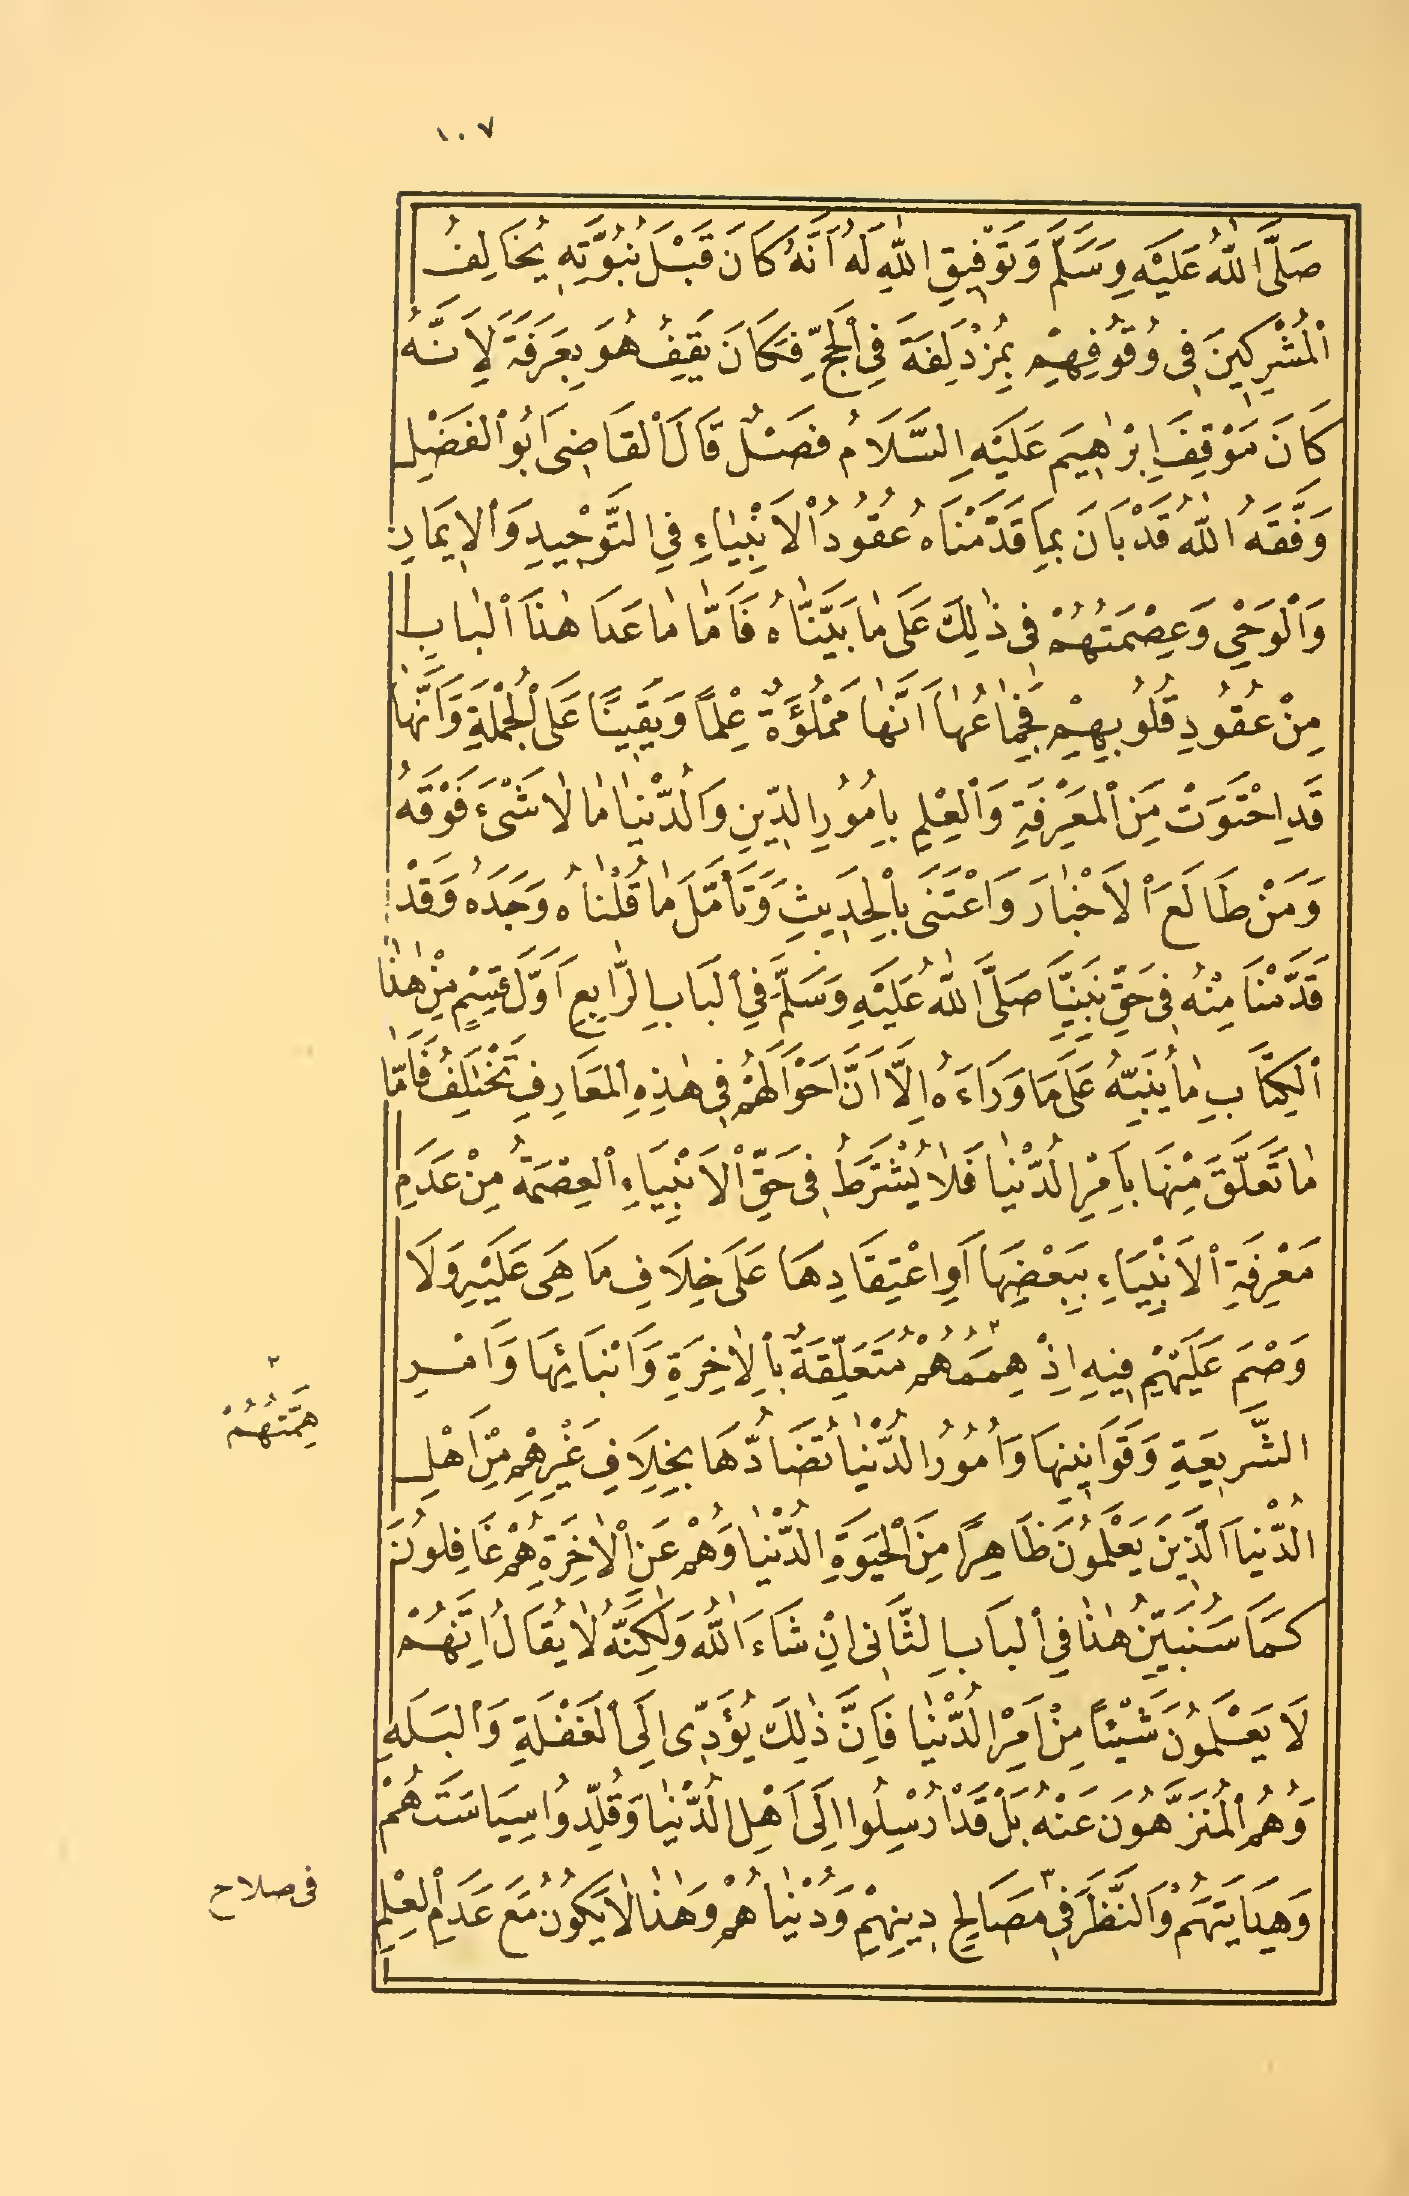 ١٠٧
صَلَّى اللهُ عَلَيْهِ وَسَلَّمَ وَتَوْفِيقِ اللهِ لَهُ اَنَّهُ كَانَ قَبْلَ نُبُوَّتِهِ يُخَالِفُ
اْلمُشْرِكِينَ فِى وُقُوفِهِمْ بِمُزْدَلِفَةَ فِى اْلحَجِّ فَكَانَ يَقِفُ هُوَ بِعَرَفَةَ لِاَنَّهُ
كَانَ مَوْقِفَ اِبْرٰهِيمَ عَلَيْهِ السَّلَامُ فَصْلٌ قَالَ اْلقَاضِى اَبُو اْلفَضْلِ
وَفَّقَهُ اللهُ قَدْ بَانَ بِمَا قَدَّمْنَاهُ عُقُودُ اْلاَنْبِيٰاءِ فِي التَّوْحِيدِ وَاْلاِيمَانِ
وَاْلوَحْيِ وَعِصْمَتُهُمْ فِى ذٰلِكَ عَلَى مٰا بَيَّنَّاهُ فَاَمَّا مٰا عَدَا هٰذَا اْلبٰابِ
مِنْ عُقُودِ قُلُوبِهِمْ فَجِمٰاعُهٰا اَنَّهٰا مَمْلُوَّةٌ عِلْمًا وَيَقِينًا عَلَى اْلجُمْلَةِ وَاَنَّهٰا
قَدِ احْتَوَتْ مِنَ اْلمَعْرِفَةِ وَاْلعِلْمِ بِاُمُورِ الدِّينِ وَالدُّنْيٰا مٰا لٰا شَىْءَ فَوْقَهُ
وَمَنْ طَالَعَ اْلاَخْبٰارَ وَاعْتَنَى بِاْلحَدِيثِ وَتَأَمَّلَ مٰا قُلْنٰاهُ وَجَدَهُ وَقَدْ
قَدَّمْنَا مِنْهُ فِى حَقِّ نَبِيِّنَا صَلَّى اللهُ عَلَيْهِ وَسَلَّمَ فِي اْلبَابِ الرَّابِعِ اَوَّلَ قِسْمٍ مِنْ هٰذَا
اْلكِتَابِ مٰا يُنَبِّهُ عَلَى مَا وَرَاءَهُ اِلَّا اَنَّ اَحْوَالَهُمْ فِى هٰذِهِ اْلمَعَارِفِ تَخْتَلِفُ فَاَمَّا
مٰا تَعَلَّقَ مِنْهَا بِاَمْرِ الدُّنْيٰا فَلٰا يُشْتَرَطُ فِى حَقِّ اْلاَنْبِيَاءِ اْلعِصْمَةُ مِنْ عَدَمِ
مَعْرِفَةِ اْلاَنْبِيَاءِ بِبَعْضِهَا اَوِ اعْتِقَادِهَا عَلَى خِلَافِ مَا هِىَ عَلَيْهِ وَلَا
وَصْمَ عَلَيْهِمْ فِيهِ اِذْ هِمَمُهُمْ ٢ مُتَعَلِّقَةٌ بِاْلاٰخِرَةِ وَاَنْبَائِهَا وَاَمْرِ
الشَّرِيعَةِ وَقَوَانِينِهَا وَاُمُورُ الدُّنْيٰا تُضَادُّهَا بِخِلَافِ غَيْرِهِمْ مِنْ اَهْلِ
الدُّنْيَا الَّذِينَ يَعْلَمُونَ ظَاهِرًا مِنَ اْلحَيٰوةِ الدُّنْيٰا وَهُمْ عَنِ اْلاٰخِرَةِ هُمْ غَافِلُونَ
كَمَا سَنُبَيِّنُ هٰذٰا فِي اْلبَابِ الثَّانِى اِنْ شَاءَ اللهُ وَلٰكِنَّهُ لٰا يُقَالُ اِنَّهُمْ
لَا يَعْلَمُونَ شَيْئًا مِنْ اَمْرِ الدُّنْيٰا فَاِنَّ ذٰلِكَ يُؤَدِّى اِلَى اْلغَفْلَةِ وَاْلبَلَهِ
وَهُمُ اْلمُنَزَّهُونَ عَنْهُ بَلْ قَدْ اُرْسِلُوا اِلَى اَهْلِ الدُّنْيٰا وَقُلِّدُوا سِيَاسَتَهُمْ
وَهِدَايَتَهُمْ وَالنَّظَرَ فِى ٣ مَصَالِحِ دِينِهِمْ وَدُنْيٰاهُمْ وَهٰذٰا لٰا يَكُونُ مَعَ عَدَمِ اْلعِلْمِ
٢
هِمَّتُهُمْ
فى صلاح